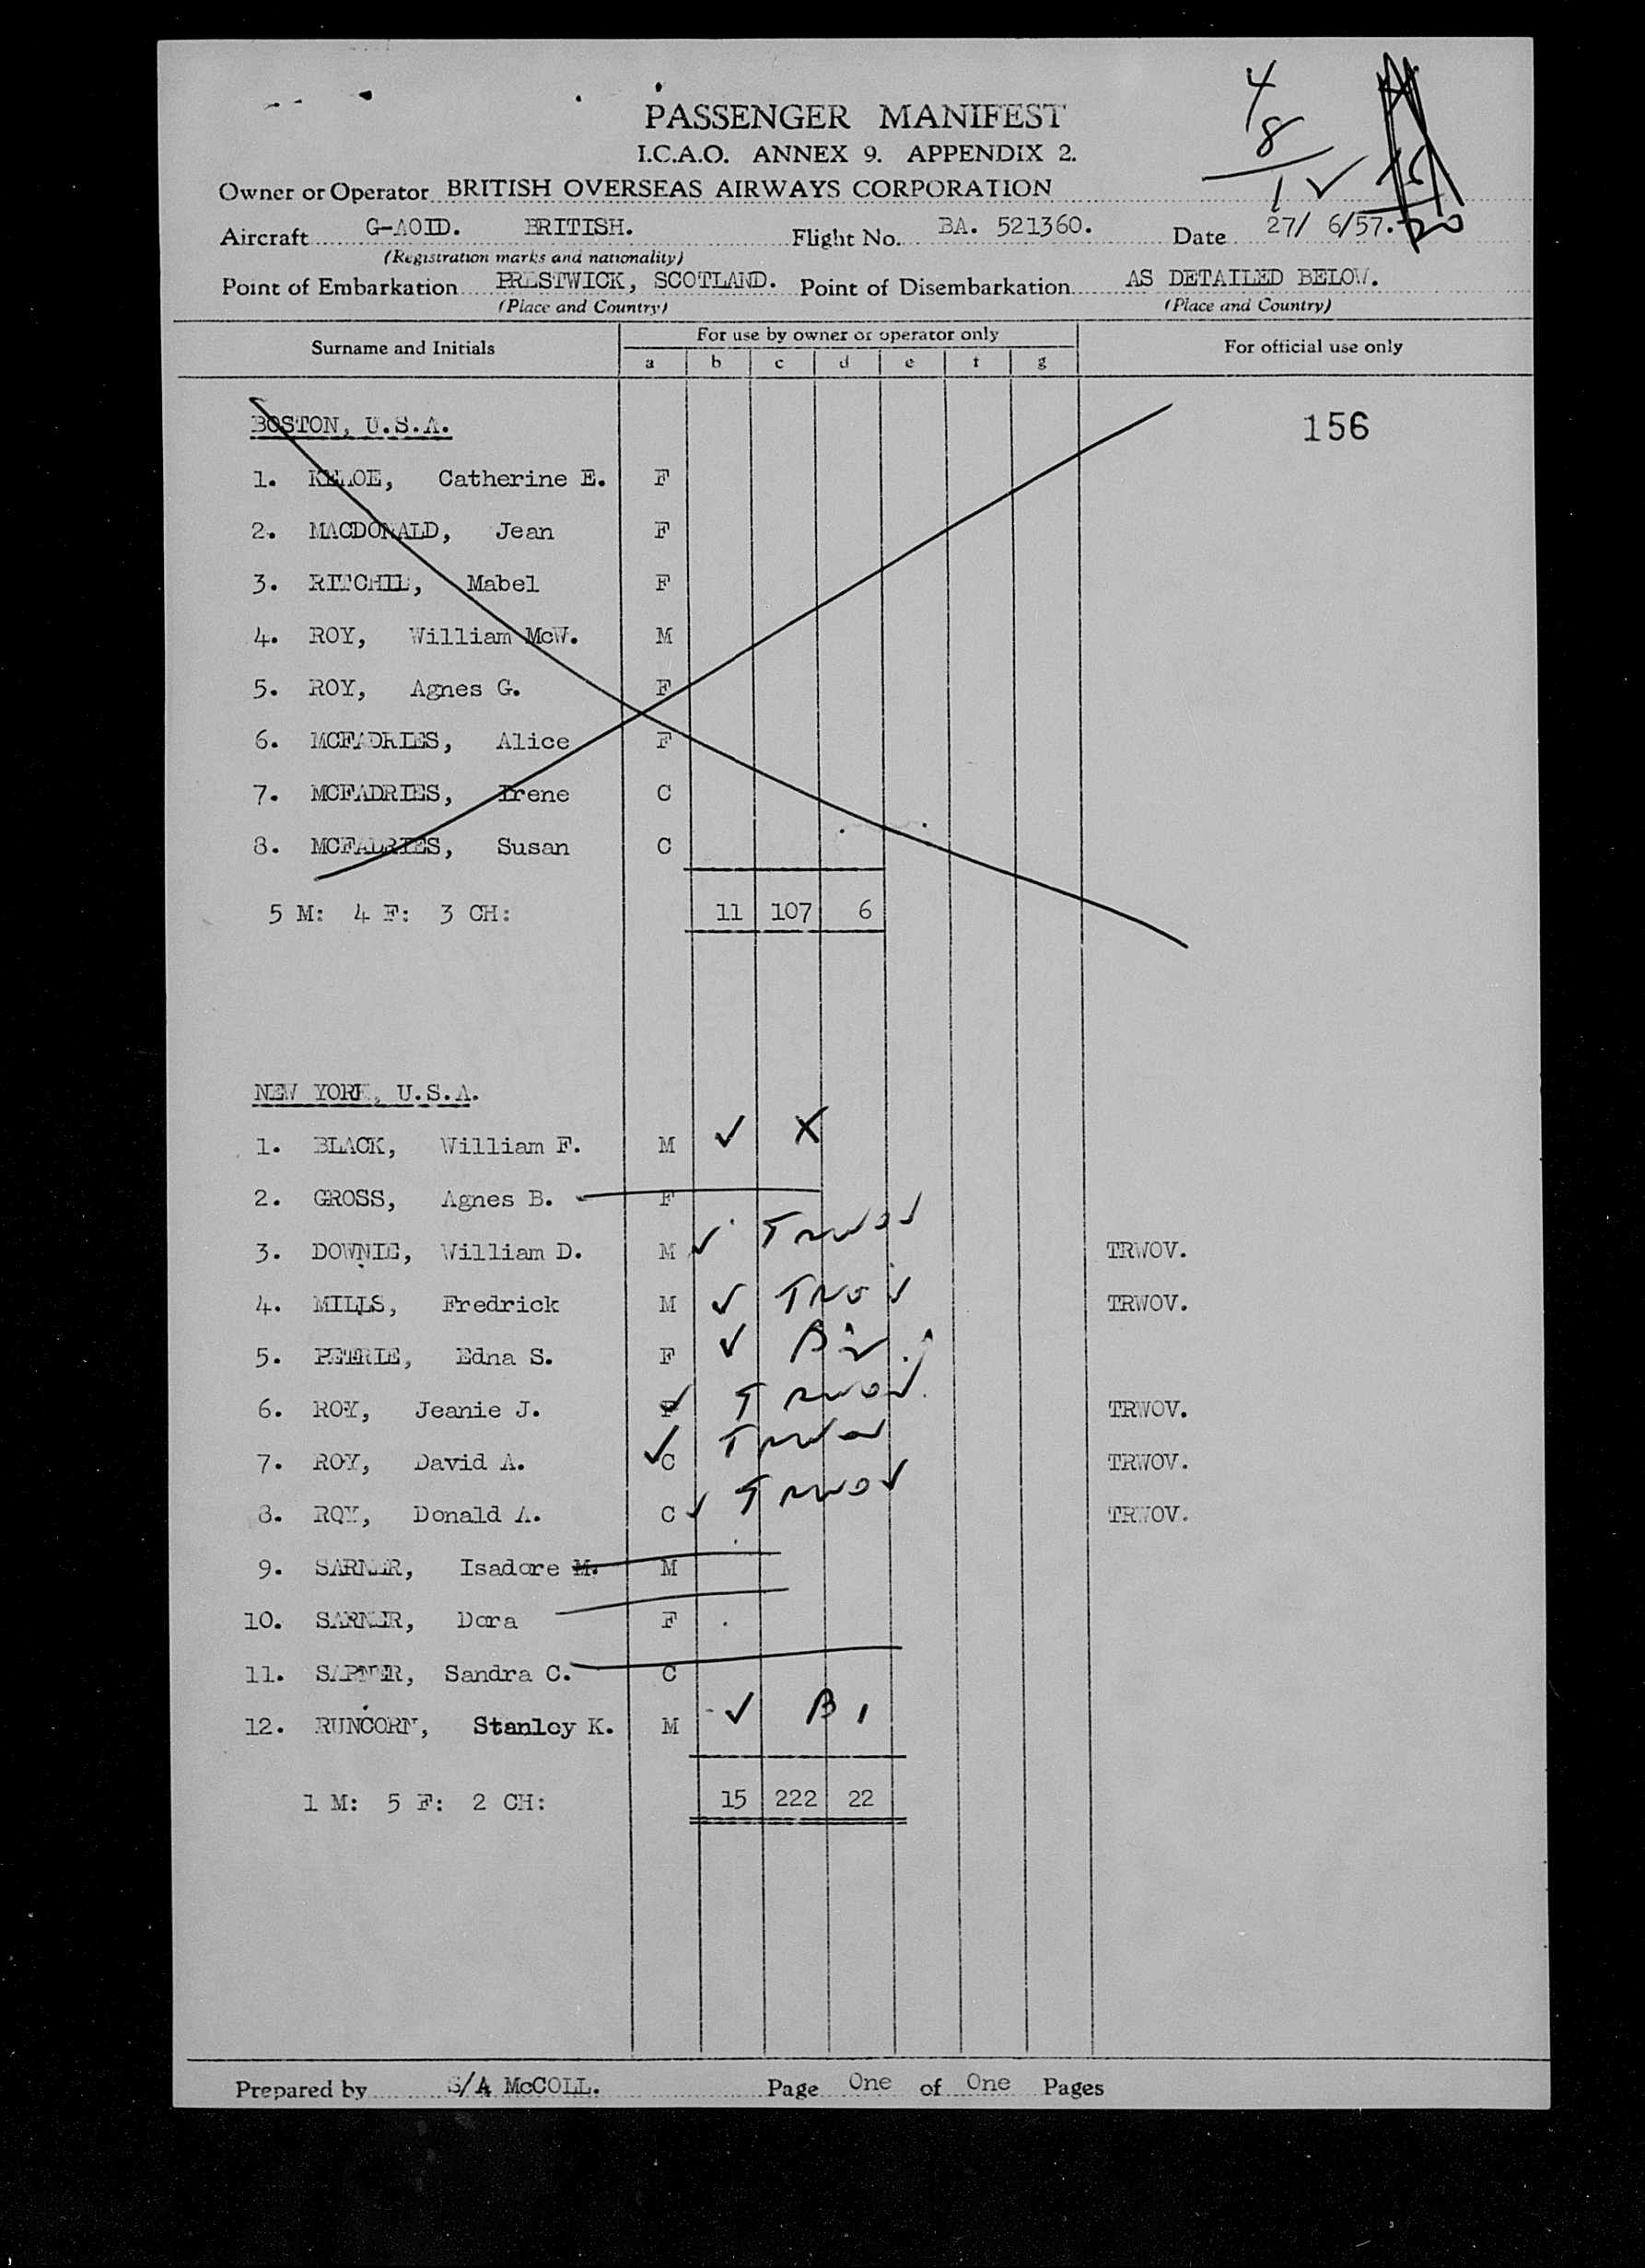 PASSENGER MANIFEST
I.C.A.O. ANNEX 9. APPENDIX 2.
4
8
1 ✓
20
Owner or Operator BRITISH OVERSEAS AIRWAYS CORPORATION
Aircraft G-AOID. BRITISH. Flight No. BA. 521360. Date 27/ 6/57.
(Registration marks and nationality)
Point of Embarkation PRESTWICK, SCOTLAND. Point of Disembarkation AS DETAILED BELOW.
(Place and Country) (Place and Country)
Surname and Initials For use by owner or operator only For official use only
a b c d e f g
BOSTON, U.S.A. 156
1. Catherine E. F
2. MACDONALD, Jean F
3. RITCHIE, Mabel F
4. ROY, William McW. M
5. ROY, Agnes G. F
6. MCFADRIES, Alice F
7. MCFADRIES, Irene C
8. MCFADRIES, Susan C
5 M: 4 F: 3 CH: 11 107 6
NEW YORK, U.S.A.
1. BLACK, William F. M ✓ X
2. GROSS, Agnes B. F
3. DOWNIE, William D. M ✓ TRWOV TRWOV.
4. MILLS, Fredrick M ✓ TRWOV.
5. PETRIE, Edna S. F ✓
6. ROY, Jeanie J. F ✓ TRWOV TRWOV.
7. ROY, David A. C ✓ TRWOV TRWOV.
8. ROY, Donald A. C ✓ TRWOV TRWOV.
9. SARNER, Isadore M. M
10. SARNER, Dora F
11. SARNER, Sandra C. C
12. RUNCORN, Stanley K. M ✓ B 1
1 M: 5 F: 2 CH: 15 222 22
Prepared by S/A McCOLL. Page One of One Pages